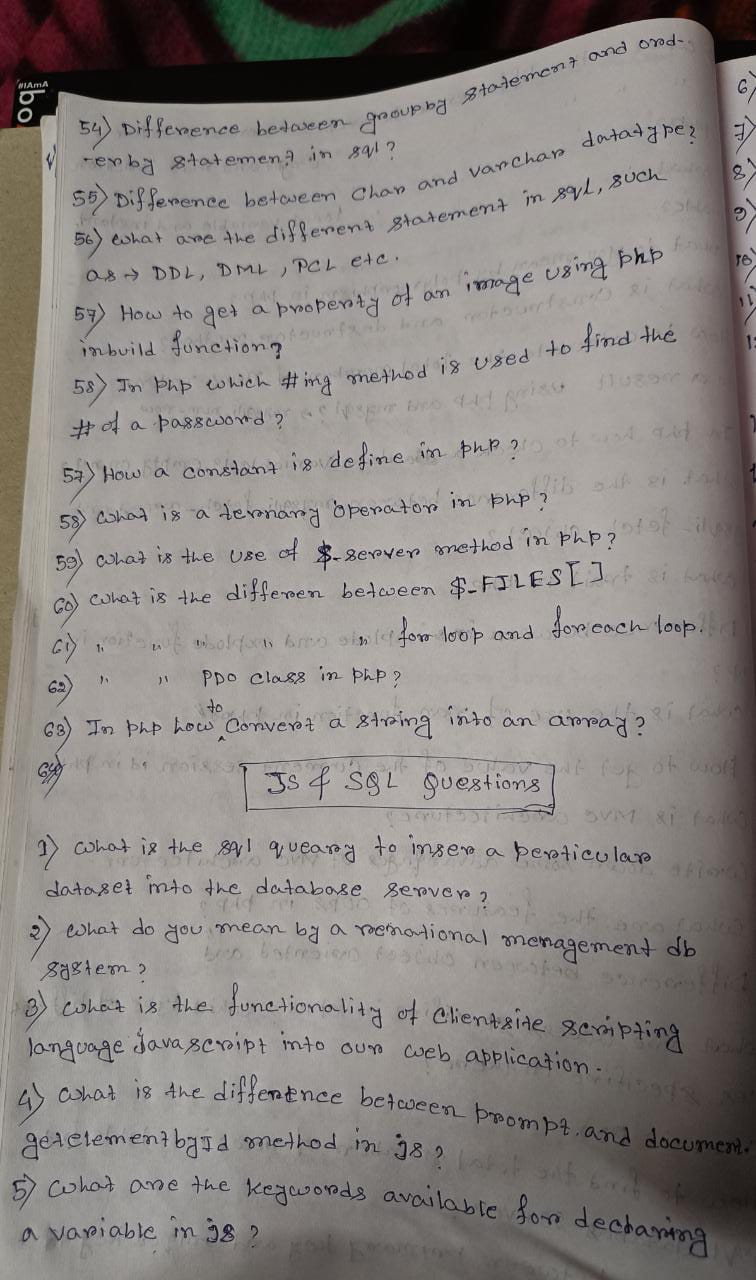 #IAMA
bo
54) Difference between group by statement and ord-
-er by statement in sql?
55) Difference between Char and varchar datatype?
56) what are the different statement in sql, such
as → DDL, DML, PCL etc.
57) How to get a properity of an image using php
inbuild function?
58) In php which #ing method is used to find the
# of a password?
57) How a constant is define in php?
58) what is a ternary operator in php?
59) what is the use of $_server method in php?
60) what is the differen between $_FILES[]
61) " " " " " for loop and foreach loop.
62) " " PDO class in php?
63) In php how to convert a string into an array?
64)
JS & SQL Questions
1) what is the sql queary to inser a perticular
dataset into the database server?
2) what do you mean by a remational menagement db
system?
3) what is the functionality of clientsite scripting
language Javascript into our web application.
4) what is the differtence between prompt, and document.
getelementbyId method in js?
5) what are the keywords available for declaring
a variable in js?
6)
7)
8)
9)
10)